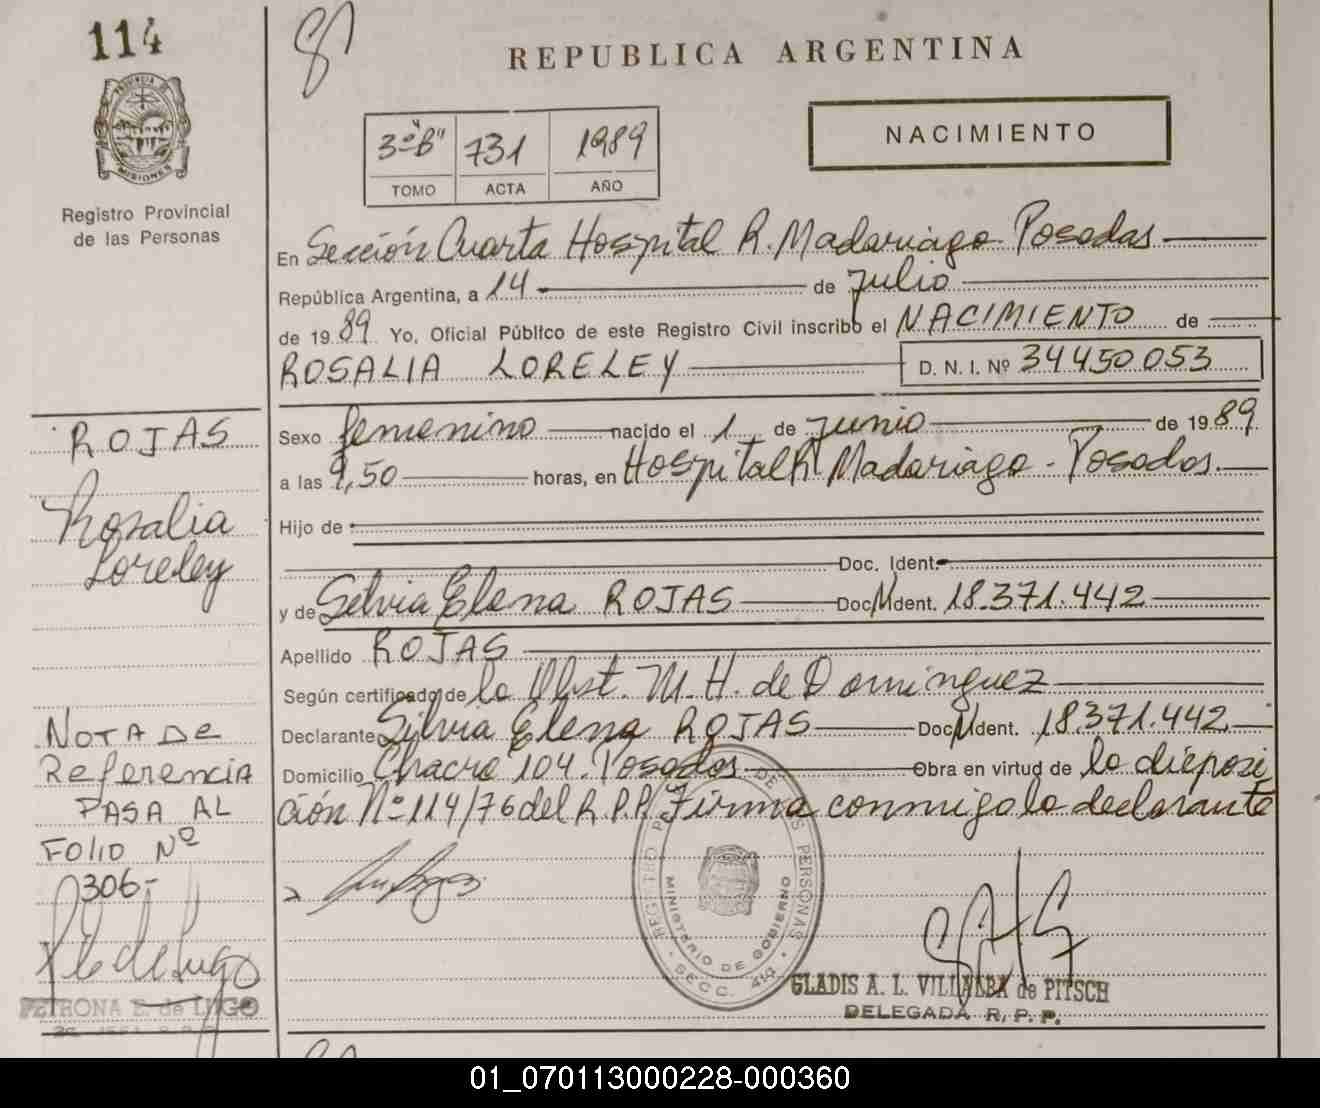 114
PROVINCIA DE
MISIONES
Registro Provincial
de las Personas
REPUBLICA ARGENTINA
3º "B" 731 1989
TOMO ACTA AÑO
NACIMIENTO
En Sección Cuarta Hospital R. Madariaga - Posadas
República Argentina, a 14 de julio
de 1989. Yo, Oficial Público de este Registro Civil inscribo el NACIMIENTO de
ROSALIA LORELEY D. N. I. Nº 34450053
Sexo femenino nacido el 1 de junio de 1989
a las 9,50 horas, en Hospital R. Madariaga - Posadas.
Hijo de
Doc. Ident.
y de Silvia Elena ROJAS Doc. Ident. 18.371.442
Apellido ROJAS
Según certificado de la Obst. M. H. de Dominguez
Declarante Silvia Elena ROJAS Doc. Ident. 18.371.442
Domicilio Chacra 104. Posadas Obra en virtud de la disposi
ción Nº 114/76 del R.P.P. Firma conmigo la declarante
ROJAS
Rosalia
Loreley
NOTA DE
Referencia
PASA AL
FOLIO Nº
306-
PETRONA E. de LUGO
REGISTRO DE PERSONAS
MINISTERIO DE GOBIERNO
SECC. 4ta
GLADIS A. L. VILLALBA de PITSCH
DELEGADA R. P. P.
01_070113000228-000360